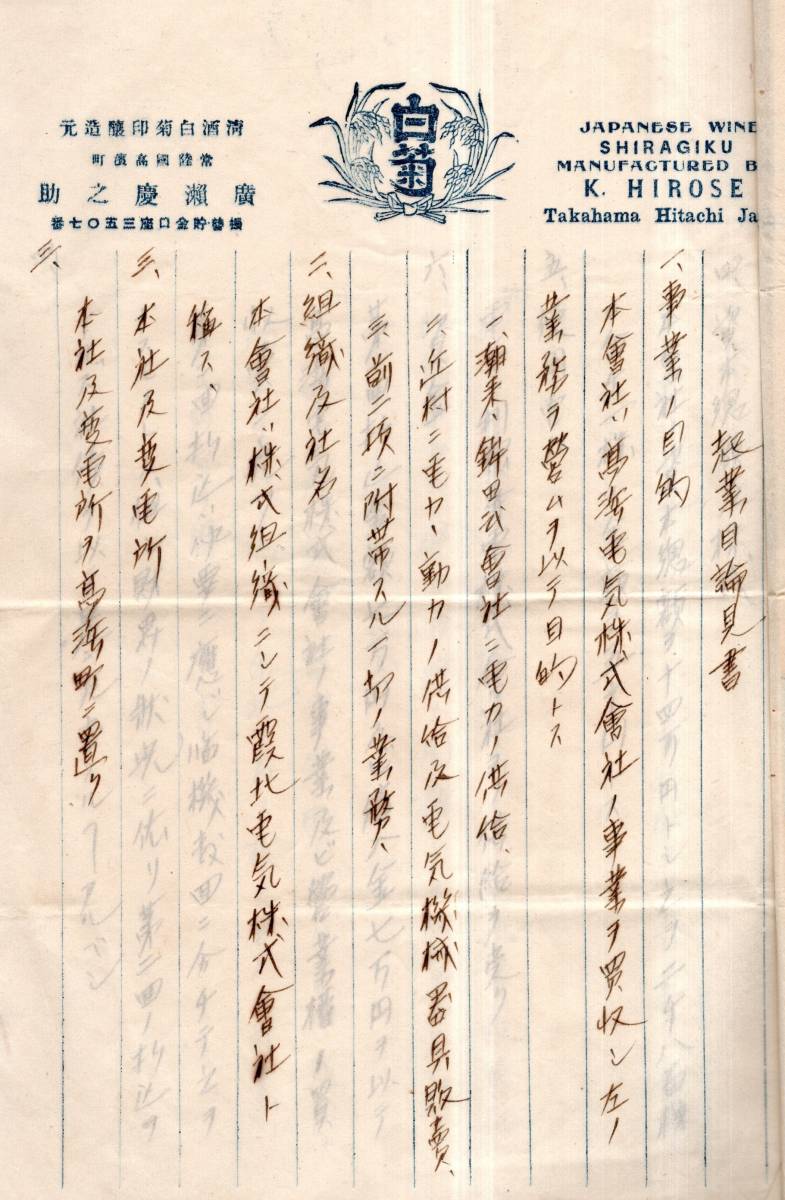 清酒白菊印釀造元
常陸國高濵町
廣瀨慶之助
振替貯金口座三五〇七番
白菊
JAPANESE WINE
SHIRAGIKU
MANUFACTURED B
K. HIROSE
Takahama Hitachi Ja
起業目論見書
一、事業ノ目的
本會社ハ髙浜電気株式會社ノ事業ヲ買収シ左ノ
業務ヲ營ムヲ以テ目的トス
一、潮来、鉾田 會社ニ電力ノ供給、
二、近村ニ電力、動力ノ供給及電気機械器具販賣、
三、前二項ニ附帯スル一切ノ業務、
二、組織及社名
本會社ハ株式組織ニシテ霞北電気株式會社ト
稱ス、
三、本社及変電所
本社及変電所ヲ髙浜町ニ置ク
三、